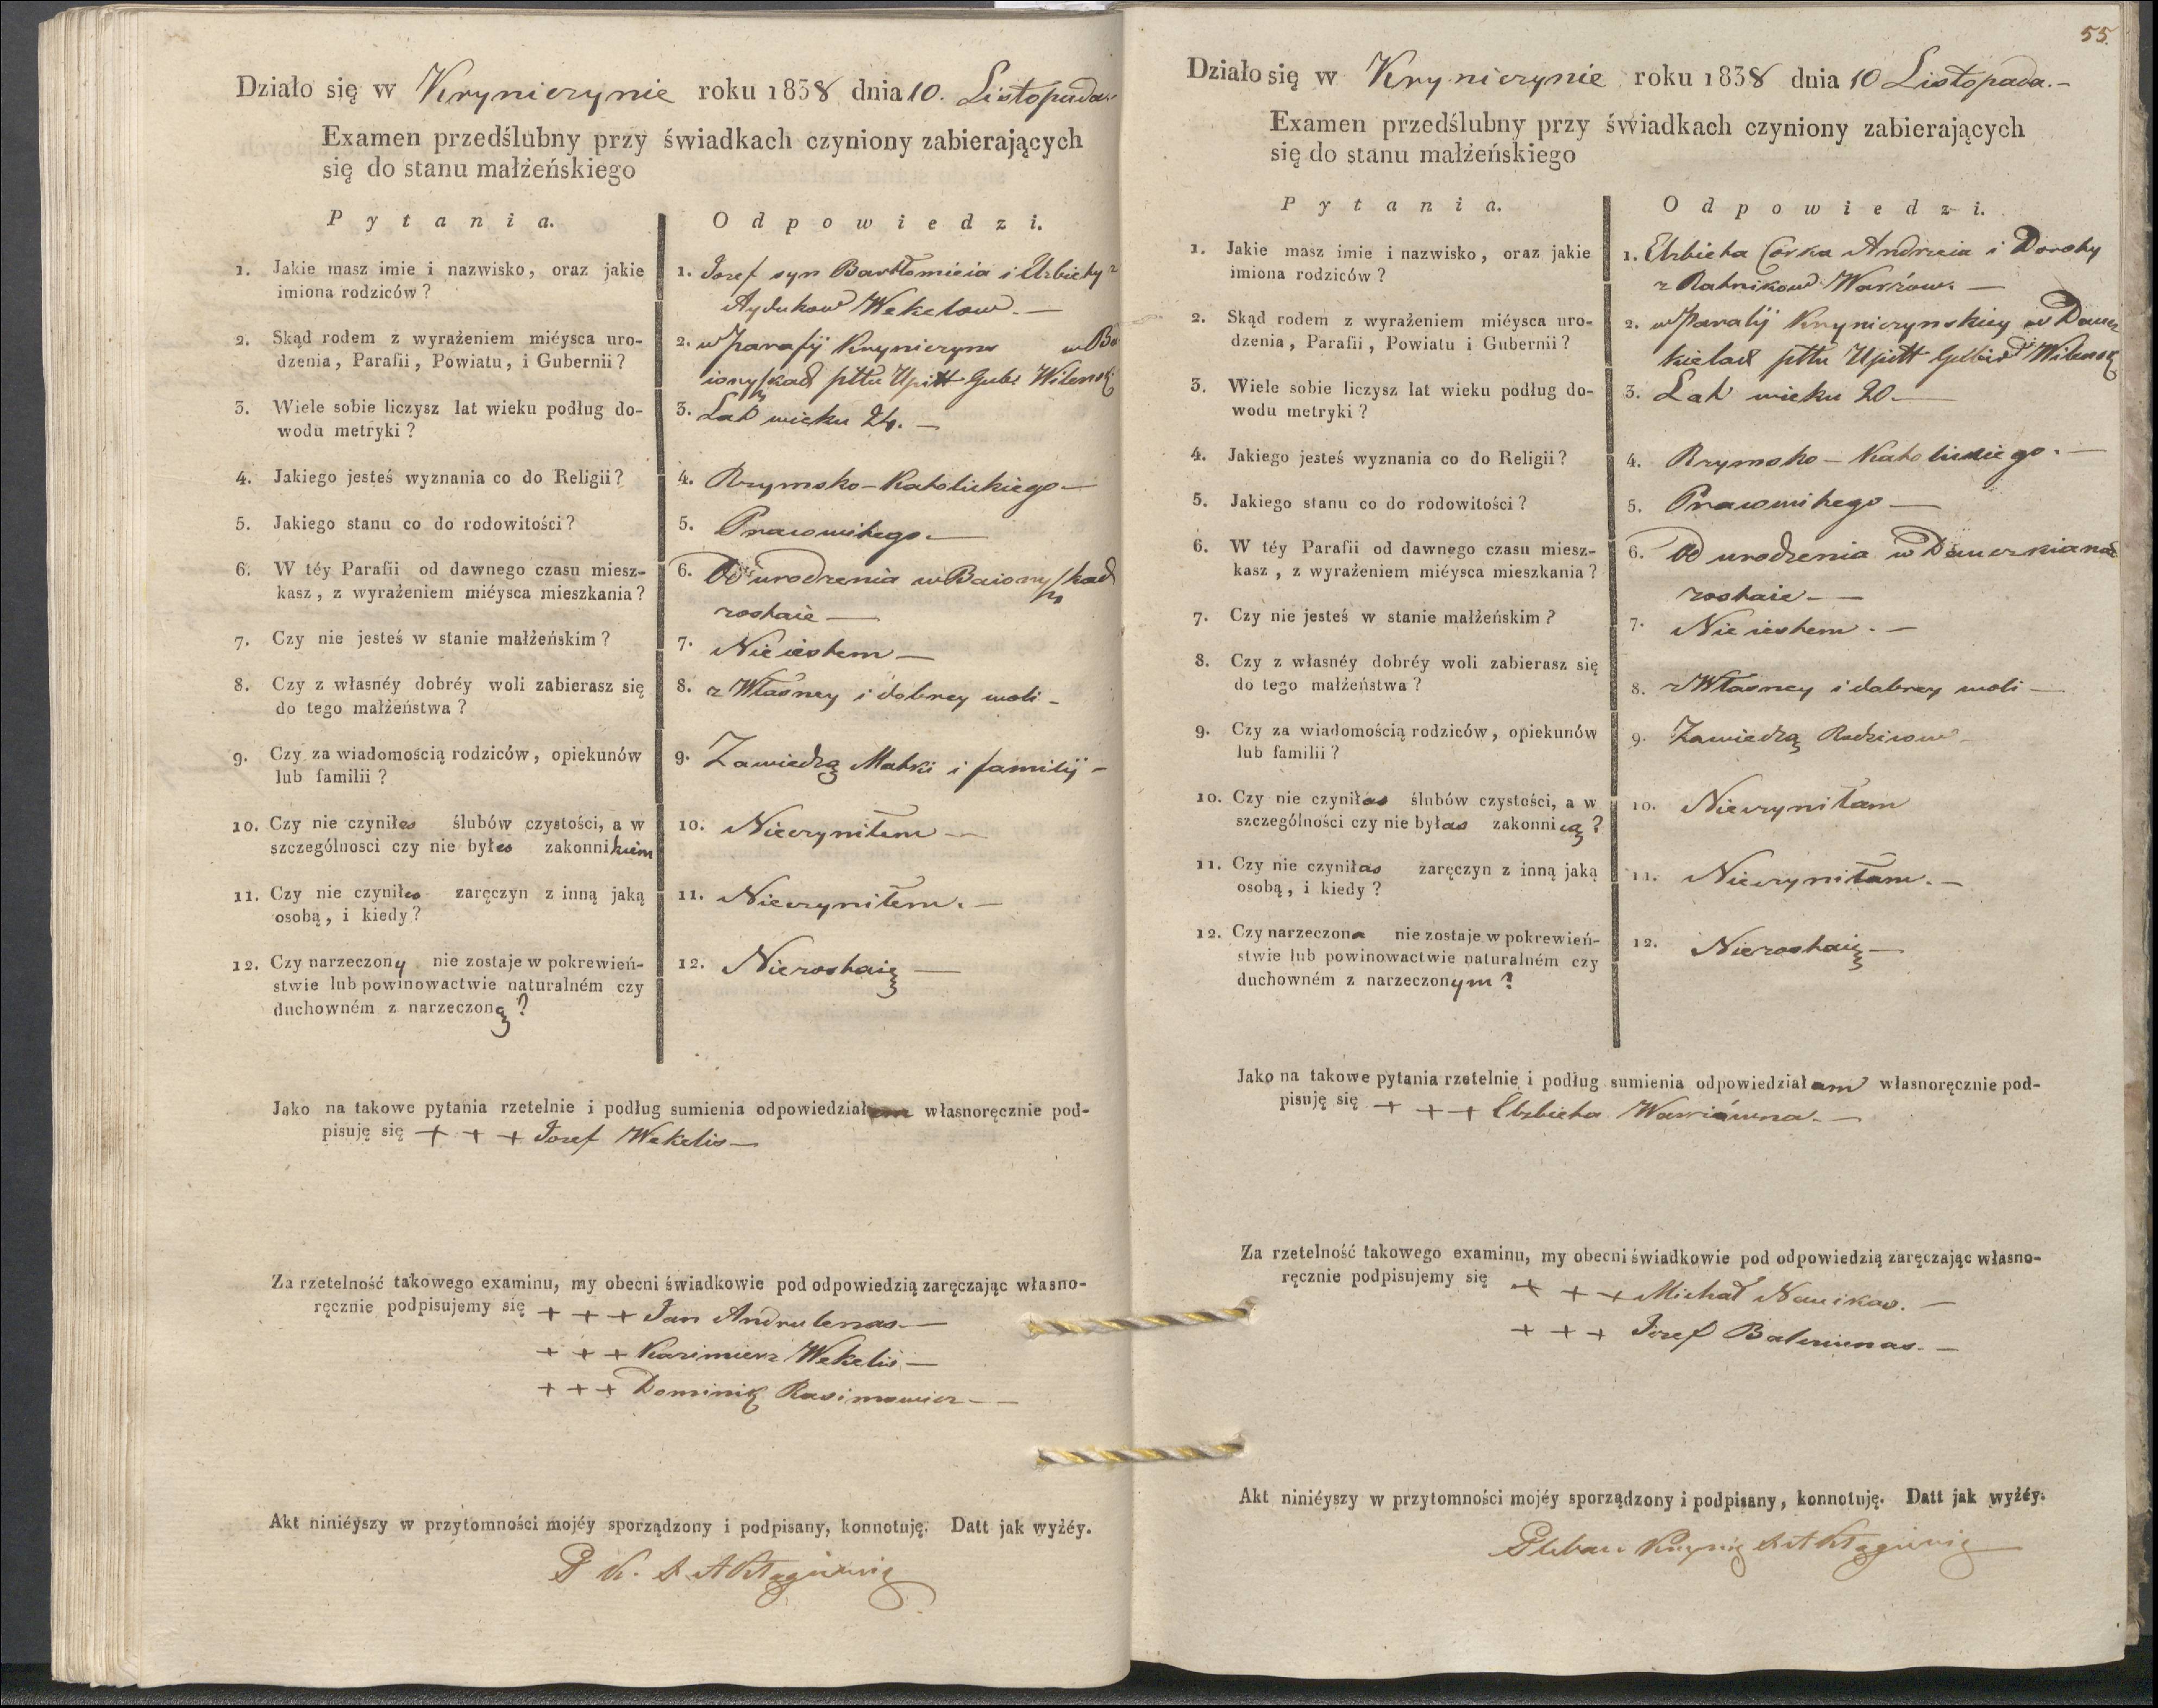 Działo się w Kryniczynie roku 1838 dnia 10. Listopada.
Examen przedślubny przy świadkach czyniony zabierających
się do stanu małżeńskiego
Pytania. Odpowiedzi.
1. Jakie masz imie i nazwisko, oraz jakie
imiona rodziców?
1. Jozef syn Bartłomieia i Elzbiety z
Aydukow Wekelow. —
2. Skąd rodem z wyrażeniem miéysca uro-
dzenia, Parafii, Powiatu, i Gubernii?
2. w Parafij Kryniczyns w
pttu Upitt Gube Wilensk
3. Wiele sobie liczysz lat wieku podług do-
wodu metryki?
3. Lat wieku 24. —
4. Jakiego jesteś wyznania co do Religii?
4. Rzymsko-Katolickiego —
5. Jakiego stanu co do rodowitości?
5. Pracowitego. —
6. W téy Parafii od dawnego czasu miesz-
kasz, z wyrażeniem miéysca mieszkania?
6. Od urodzenia w
zostaie —
7. Czy nie jesteś w stanie małżeńskim?
7. Nie iestem —
8. Czy z własnéy dobréy woli zabierasz się
do tego małżeństwa?
8. z Własney i dobrey woli —
9. Czy za wiadomością rodziców, opiekunów
lub familii?
9. Zawiedzą Matki i familij —
10. Czy nie czyniłes ślubów czystości, a w
szczególnosci czy nie byłes zakonnikiem
10. Nieczyniłem —
11. Czy nie czyniłes zaręczyn z inną jaką
osobą, i kiedy?
11. Nieczyniłem. —
12. Czy narzeczony nie zostaje w pokrewień-
stwie lub powinowactwie naturalném czy
duchowném z narzeczoną?
12. Niezostaię —
Jako na takowe pytania rzetelnie i podług sumienia odpowiedziałem własnoręcznie pod-
pisuję się + + + Jozef Wekelis —
Za rzetelność takowego examinu, my obecni świadkowie pod odpowiedzią zaręczając własno-
ręcznie podpisujemy się + + + Jan Andrulenas. —
+ + + Kazimierz Wekelis —
+ + + Dominik Rasimowicz — —
Akt niniéyszy w przytomności mojéy sporządzony i podpisany, konnotuję. Datt jak wyżéy.
P K.
55.
Działo się w Kryniczynie roku 1838 dnia 10 Listopada. —
Examen przedślubny przy świadkach czyniony zabierających
się do stanu małżeńskiego
Pytania. Odpowiedzi.
1. Jakie masz imie i nazwisko, oraz jakie
imiona rodziców?
1. Elzbieta Corka Andrzeia i Doroty
z Ratnikow —
2. Skąd rodem z wyrażeniem miéysca uro-
dzenia, Parafii, Powiatu i Gubernii?
2. w Parafij Kryniczynskiey w
pttu Upitt Wilensk
3. Wiele sobie liczysz lat wieku podług do-
wodu metryki?
3. Lat wieku 20. —
4. Jakiego jesteś wyznania co do Religii?
4. Rzymsko-Katolickiego. —
5. Jakiego stanu co do rodowitości?
5. Pracowitego —
6. W téy Parafii od dawnego czasu miesz-
kasz, z wyrażeniem miéysca mieszkania?
6. Od urodzenia w
zostaie — —
7. Czy nie jesteś w stanie małżeńskim?
7. Nie iestem. —
8. Czy z własnéy dobréy woli zabierasz się
do tego małżeństwa?
8. z Własney i dobrey woli —
9. Czy za wiadomością rodziców, opiekunów
lub familii?
9. Zawiedzą Rodzicow —
10. Czy nie czyniłas ślubów czystości, a w
szczególności czy nie byłas zakonnicą?
10. Nieczyniłam
11. Czy nie czyniłas zaręczyn z inną jaką
osobą, i kiedy?
11. Nieczyniłam. —
12. Czy narzeczona nie zostaje w pokrewień-
stwie lub powinowactwie naturalném czy
duchowném z narzeczonym?
12. Niezostaię —
Jako na takowe pytania rzetelnie i podług sumienia odpowiedziałam własnoręcznie pod-
pisuję się + + + Elzbieta
Za rzetelność takowego examinu, my obecni świadkowie pod odpowiedzią zaręczając własno-
ręcznie podpisujemy się + + + Michał
+ + + Jozef
Akt niniéyszy w przytomności mojéy sporządzony i podpisany, konnotuję. Datt jak wyżéy.
Pleban